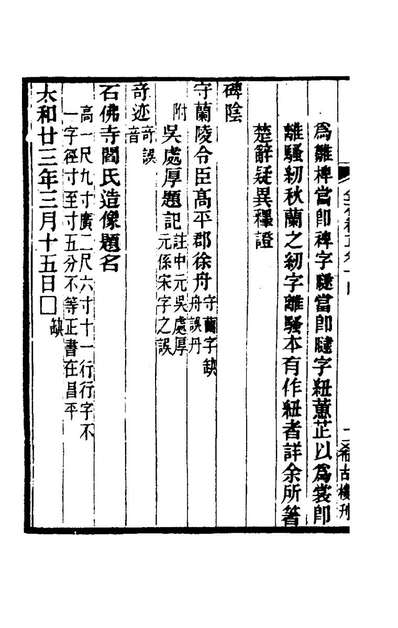 爲雛椑當卽裨字䁾當卽䁾字紐蕙茞以爲裳卽
離騷紉秋蘭之紉字離騷本有作紐者詳余所箸
楚辭疑異釋證
碑陰
守蘭陵令臣高平郡徐舟守蘭字缺舟誤丹
附吳處厚題記註中元吳處厚元係宋字之誤
奇迹音奇誤音
石佛寺閻氏造像題名
高一尺九寸廣二尺六寸十一行行字不
一字徑寸至寸五分不等正書在昌平
太和廿三年三月十五日□缺
二希古樓刊